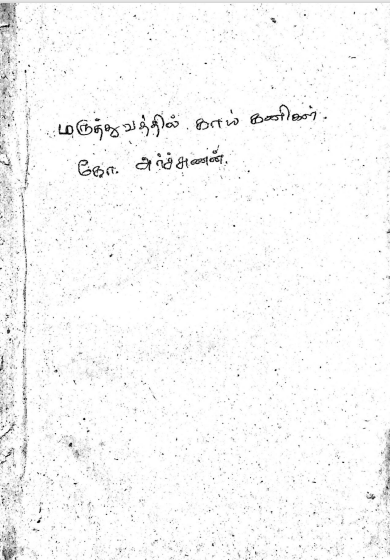 மருத்துவத்தில் காய் கனிகள்.
கோ. அர்ச்சுணன்.